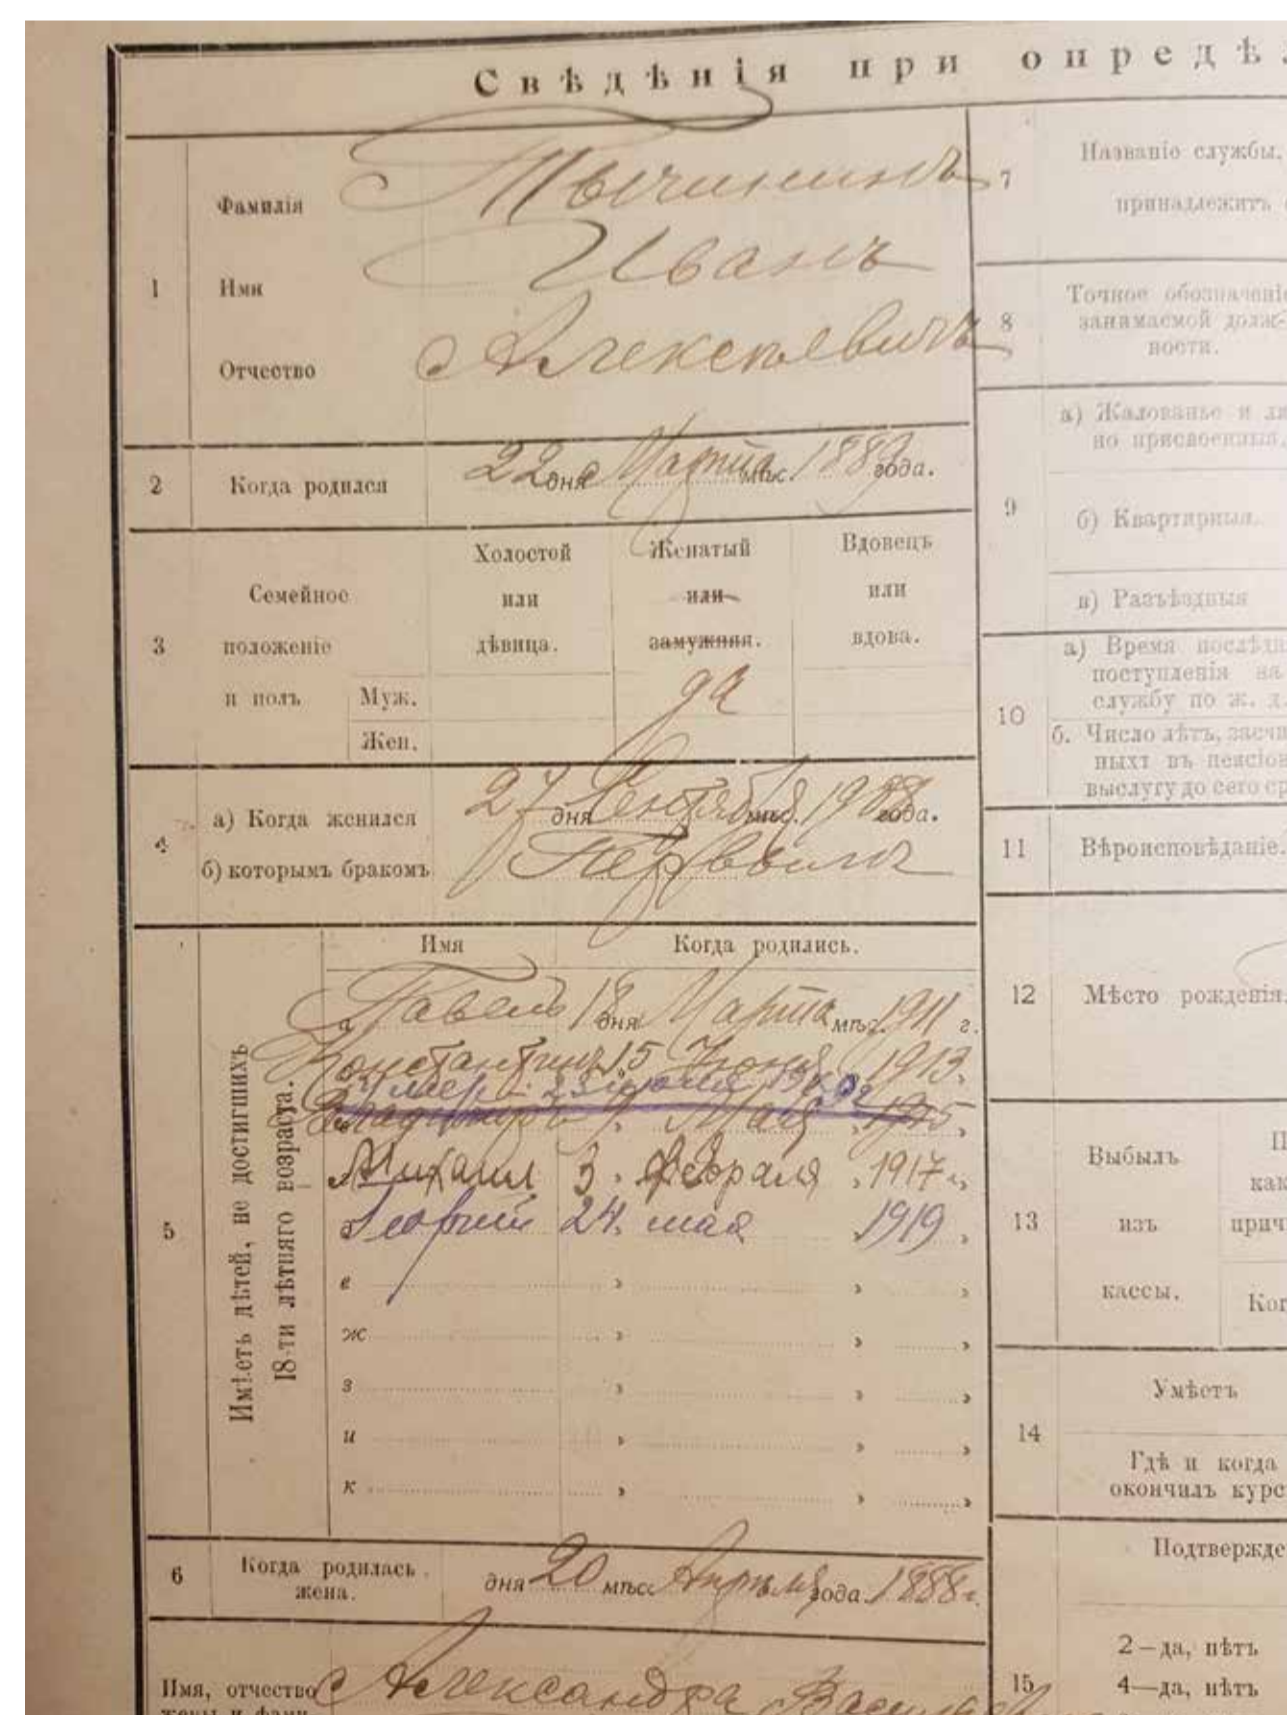 Свѣдѣнія при опредѣ
1
Фамилія Тычининъ
Имя Иванъ
Отчество Алексѣевичъ
2 Когда родился 22 дня Марта мѣс. 1889 года.
3 Семейное положеніе и полъ
Холостой или дѣвица.
Женатый или замужняя.
Вдовецъ или вдова.
Муж. да
Жен.
4 а) Когда женился 27 дня Сентября мѣс. 1908 года.
б) которымъ бракомъ Первымъ
5 Имѣетъ дѣтей, не достигшихъ
18-ти лѣтняго возраста.
Имя Когда родились.
а Павелъ 18 дня Марта мѣс. 1911 г.
Константинъ 15 Іюня 1913.
умер 23 июля
Владимиръ Мая 1915
Михаил 3. февраля 1917 г.
Георгий 24. мая 1919
е
ж
з
и
к
6 Когда родилась жена. дня 20 мѣс. Апрѣля года. 1888 г.
Имя, отчество Александра
жены и фами
7 Названіе службы.
принадлежитъ
8 Точное обозначеніе
занимаемой долж-
ности.
9 а) Жалованье и
но присвоенныя.
б) Квартирныя.
в) Разъѣздныя
10 а) Время послѣдн
поступленія на
службу по ж. д.
б. Число лѣтъ, засчи
ныхъ въ пенсіон
выслугу до сего ср
11 Вѣроисповѣданіе.
12 Мѣсто рожденія.
13 Выбылъ
изъ
кассы.
П
как
прич
Ког
14 Умѣетъ
Гдѣ и когда
окончилъ курс
Подтвержде
15
2—да, нѣтъ
4—да, нѣтъ